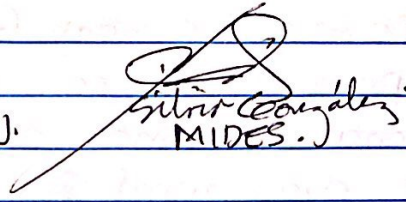 J.
Silvia González
MIDES.